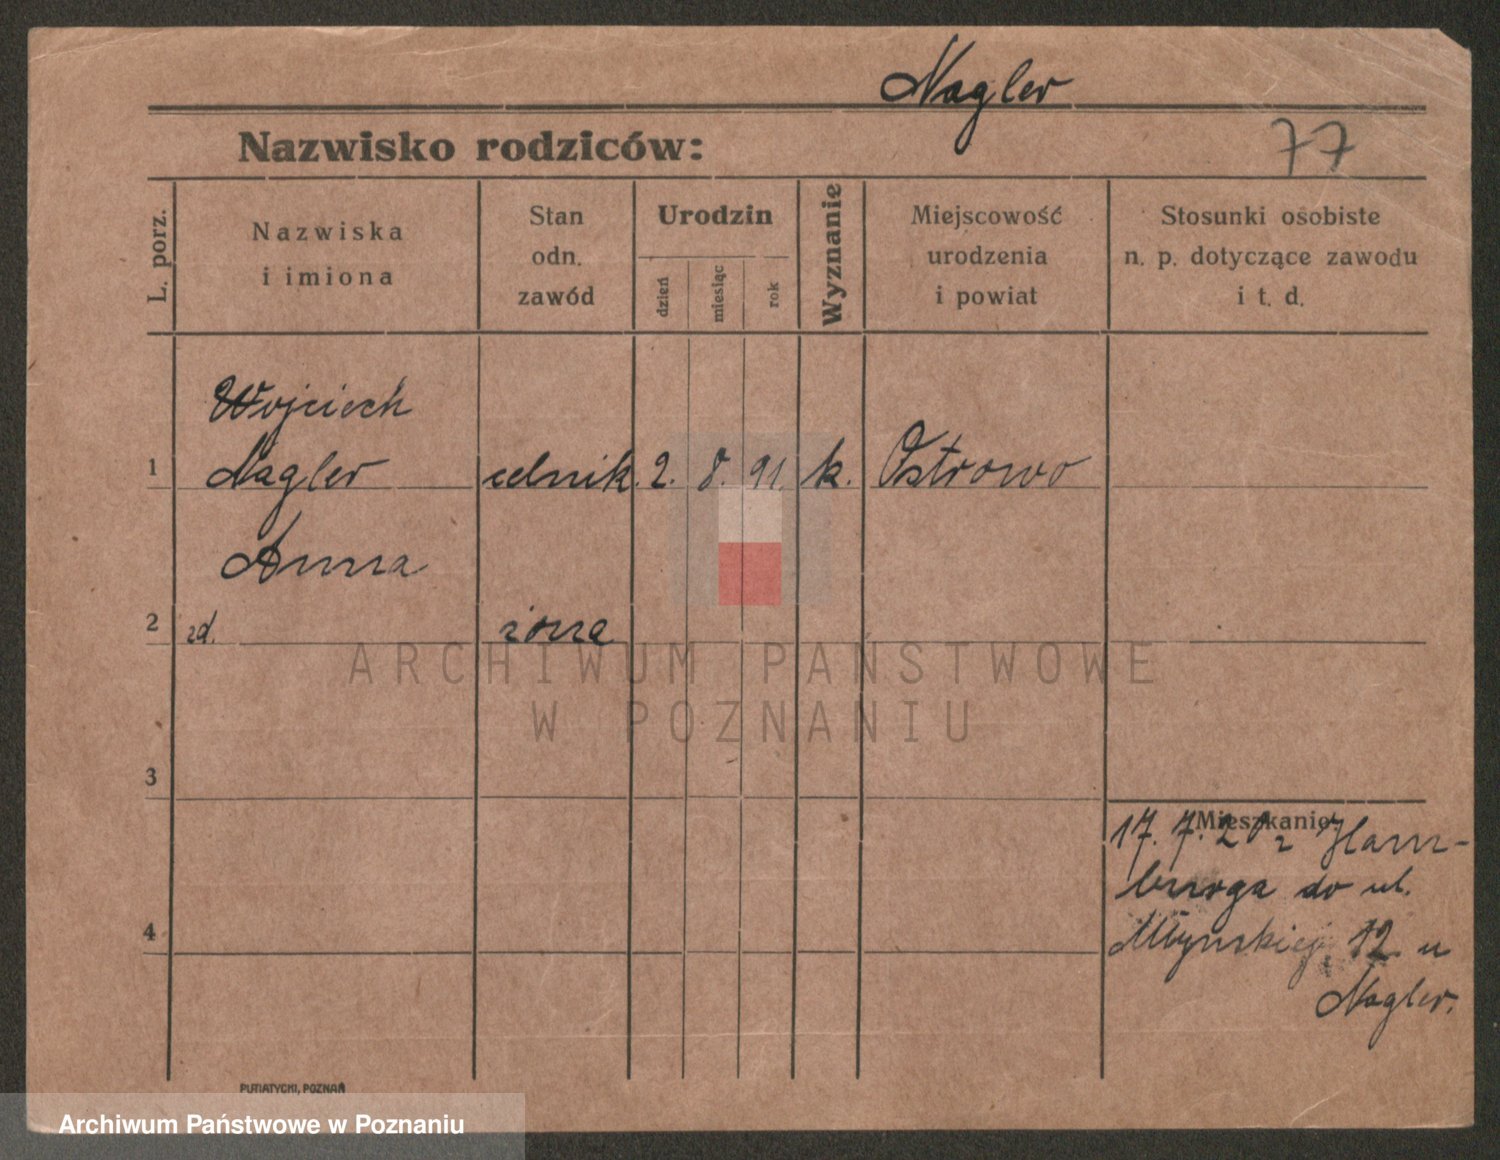 Nagler
Nazwisko rodziców:
77
L. porz.
Nazwiska
i imiona
Stan
odn.
zawód
Urodzin
dzień
miesiąc
rok
Wyznanie
Miejscowość
urodzenia
i powiat
Stosunki osobiste
n. p. dotyczące zawodu
i t. d.
Wojciech
1 Nagler celnik. 2. 8. 91. k. Ostrowo
Anna
2 zd. żona
ARCHIWUM PAŃSTWOWE
W POZNANIU
3
Mieszkanie
17. 7. 20 z Ham-
burga do ul.
4 Młyńskiej 12 u
Nagler.
PUTIATYCKI, POZNAŃ
Archiwum Państwowe w Poznaniu